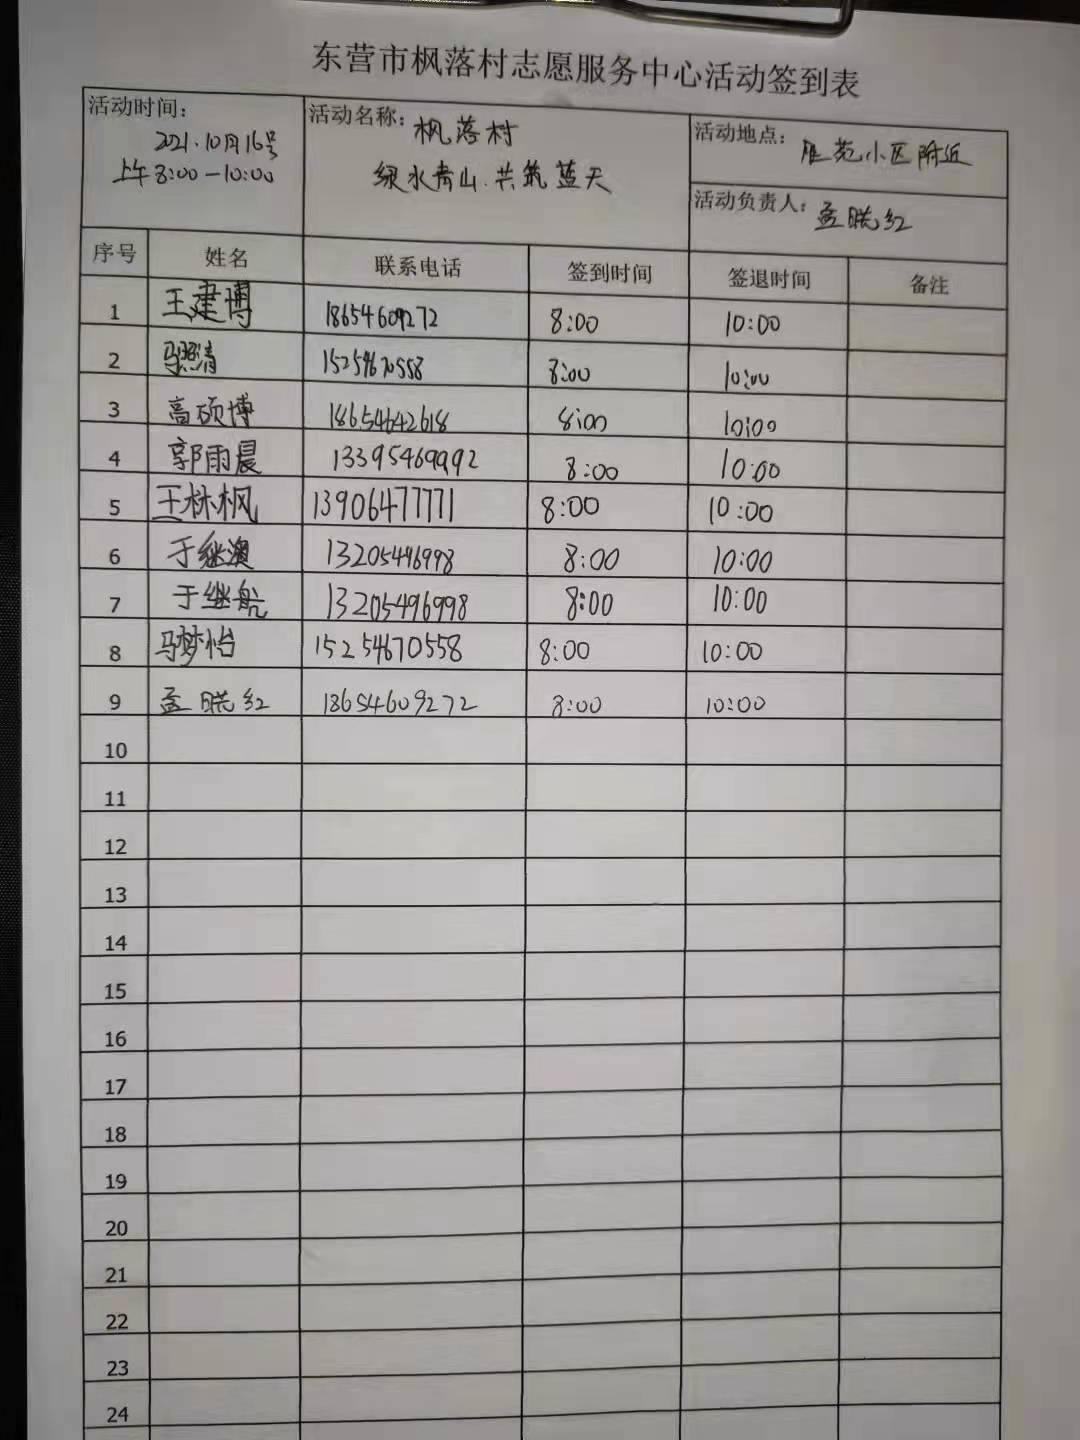 东营市枫落村志愿服务中心活动签到表
活动时间：
2021.10月16号
上午8:00—10:00
活动名称：枫落村
绿水青山.共筑蓝天
活动地点：胜苑小区附近
活动负责人：孟晓红
序号 姓名 联系电话 签到时间 签退时间 备注
1 王建博 18654609272 8:00 10:00
2 15254670558 8:00 10:00
3 高硕博 18654642618 8:00 10:00
4 郭雨晨 13395469992 8:00 10:00
5 王林枫 13906477771 8:00 10:00
6 于继澳 13205496998 8:00 10:00
7 于继航 13205496998 8:00 10:00
8 马梦怡 15254670558 8:00 10:00
9 孟晓红 18654609272 8:00 10:00
10
11
12
13
14
15
16
17
18
19
20
21
22
23
24